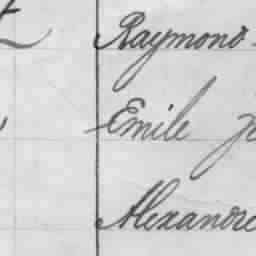 Raymond
Emile
Alexandre